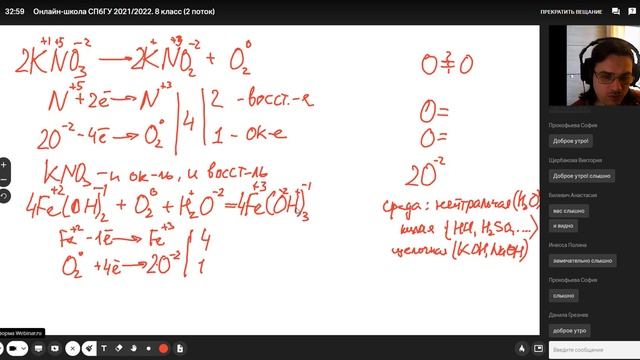 32:59 Онлайн-школа СПбГУ 2021/2022. 8 класс (2 поток)
ПРЕКРАТИТЬ ВЕЩАНИЕ
+1 +5 -2 + +3 -2 0
2KNO3 → 2KNO2 + O2
N+5 + 2ē → N+3 | 4 | 2 - восст.-я
2O-2 - 4ē → O2 0 | 1 - ок-е
KNO3 - и ок-ль, и восст-ль
+2 -1 0 + -2 +3 -2 +1 -1
4Fe(OH)2 + O2 + H2O = 4Fe(OH)3
Fe+2 - 1ē → Fe+3 | 4
O2 0 + 4ē → 2O-2 | 1
O = O
O=
O=
2O-2
среда: нейтральная (H2O)
кислая {HCl, H2SO4...}
щелочная (KOH, NaOH)
Прокофьева София
Доброе утро!
Щербакова Виктория
Доброе утро! слышно
Билевич Анастасия
вас слышно
и видно
Инесса Полина
замечательно слышно
Прокофьева София
слышно
Данила Грезнев
доброе утро
форма Webinar.ru